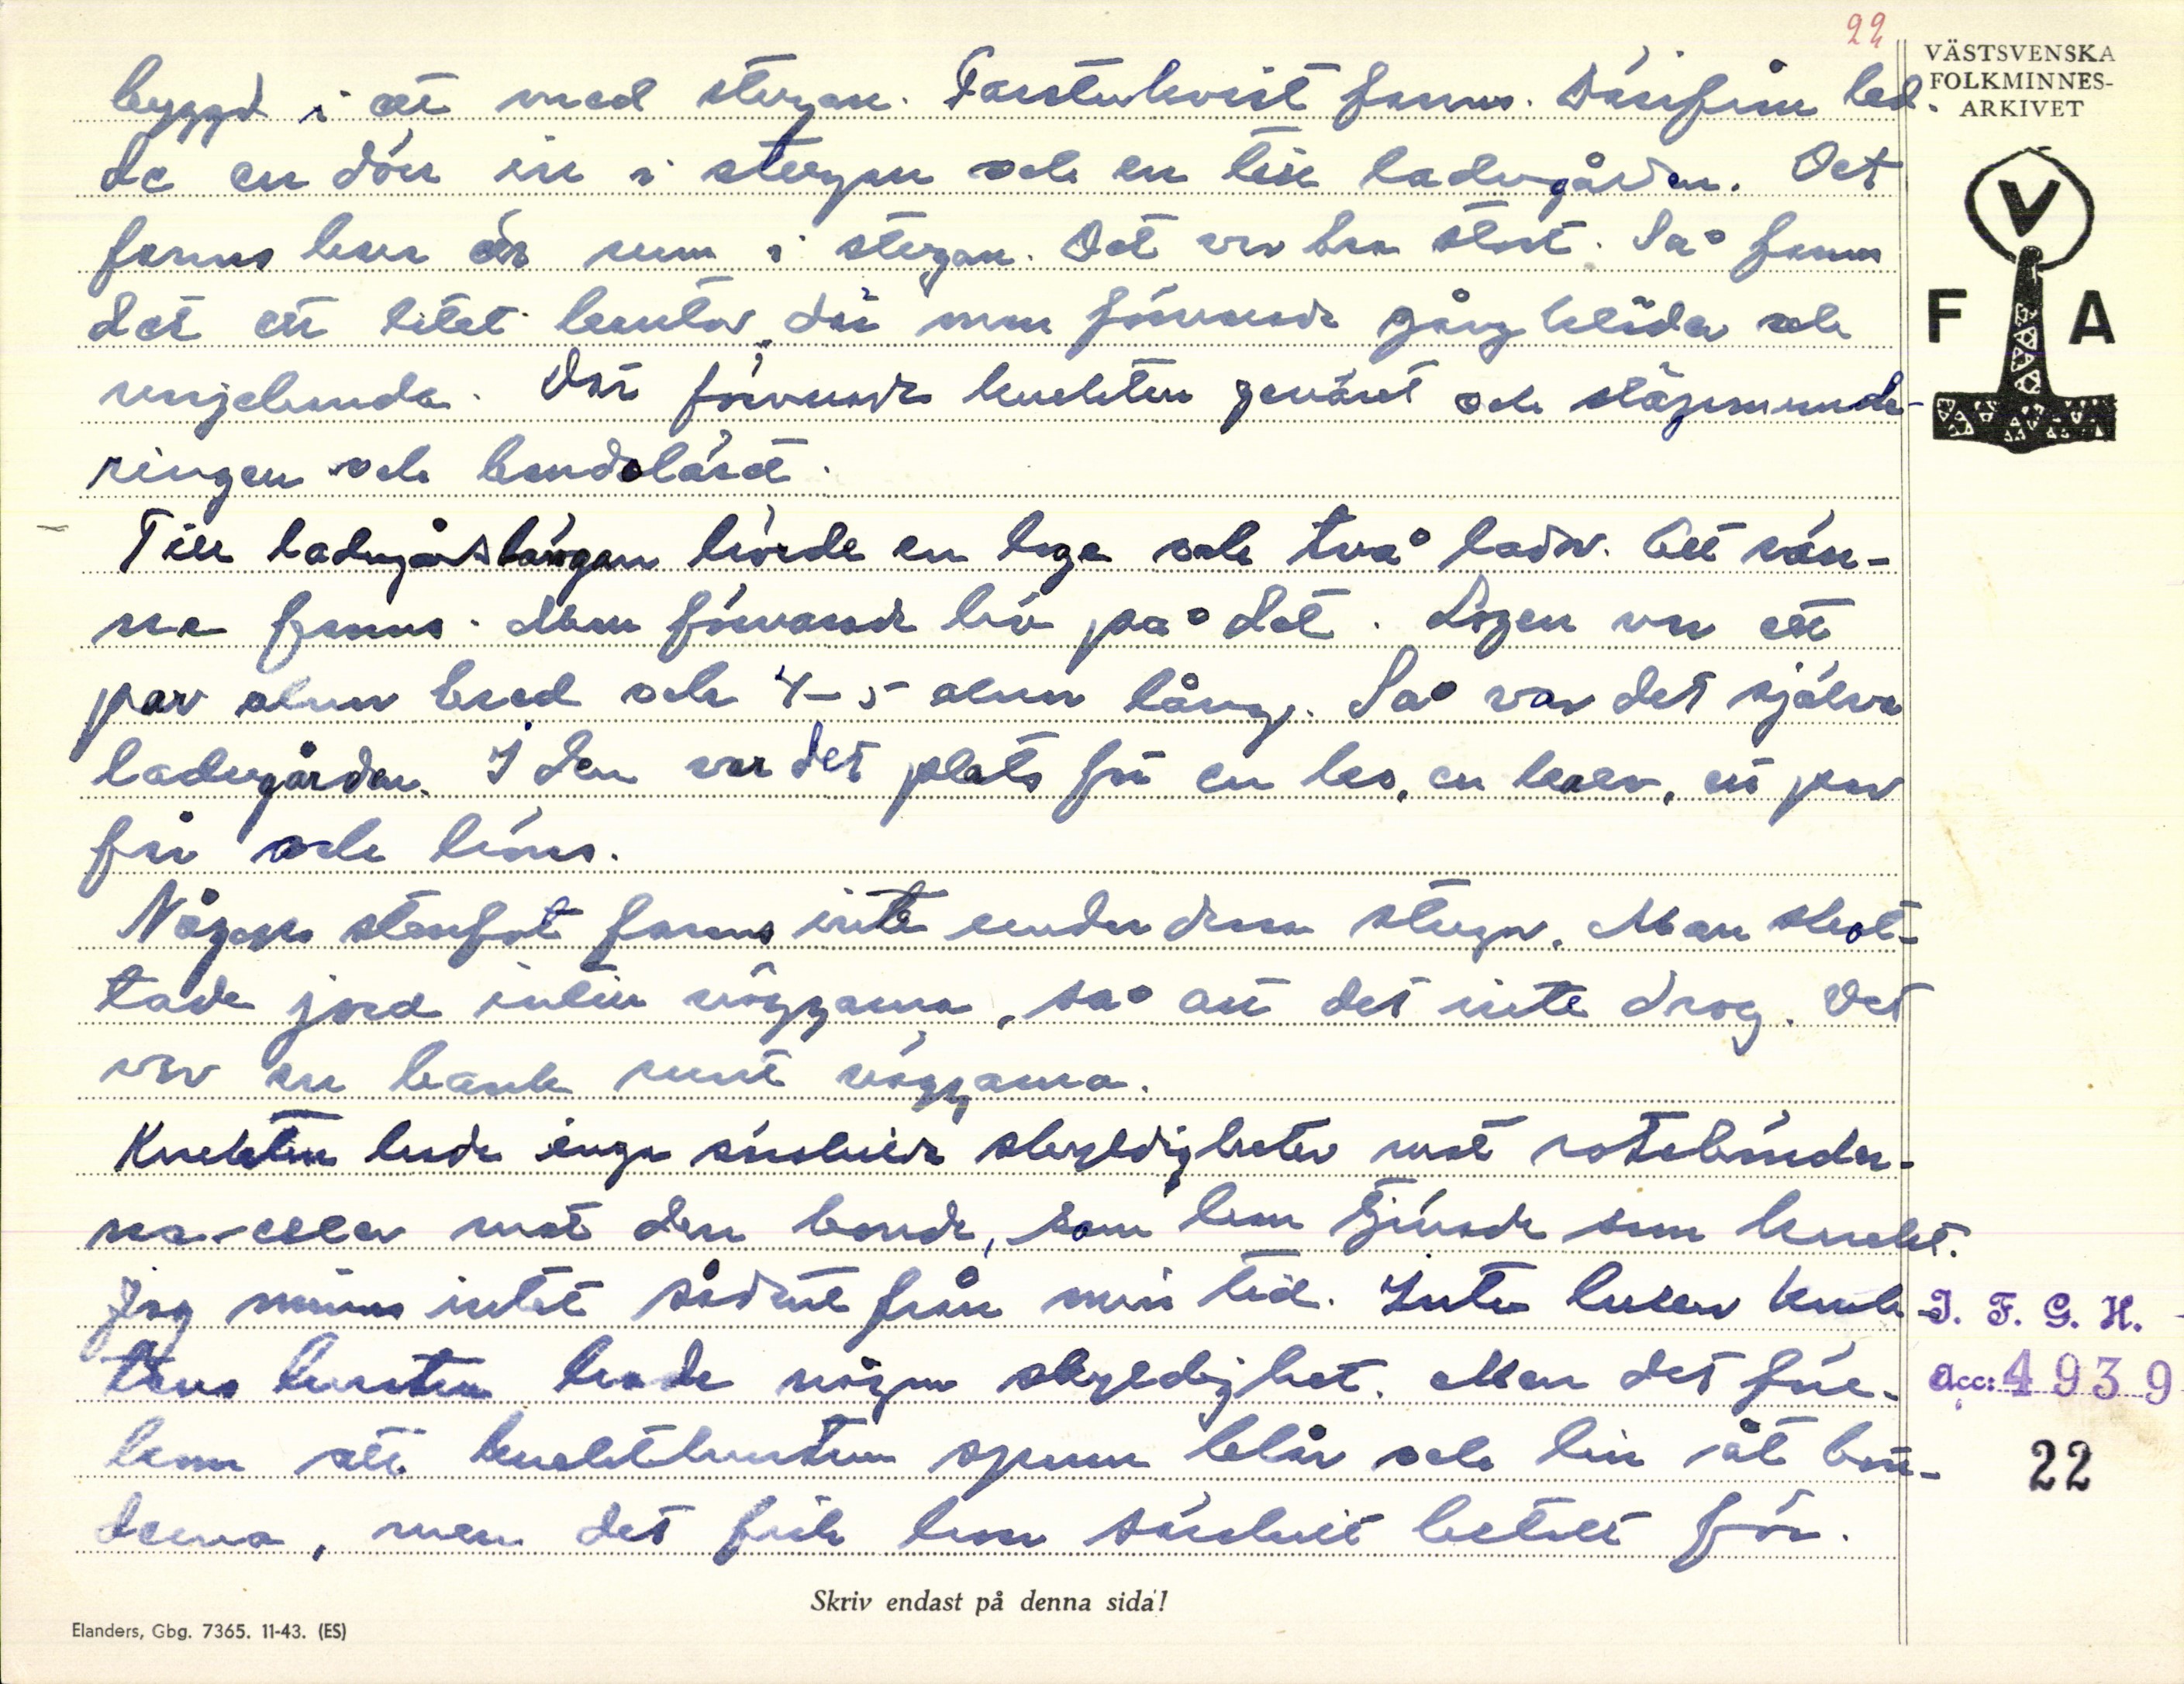 22
VÄSTSVENSKA
FOLKMINNES-
ARKIVET
V
F A
byggd i ett med stugan. Farstukvist fanns. Därifrån led-
de en dörr in i stugan och en till ladugården. Det
fanns bara ett rum i stugan. Det var bra stort. Så fanns
det ett litet kontor, där man förvarade gångkläder och
Där förvarade knekten geväret och släpmunde-
ringen och bandoläret.
Till ladugårdslängan hörde en loge och två lador. Ett rän-
ne fanns. Man förvarade hö på det. Logen var ett
par alnar bred och 4-5 alnar lång. Så var det själva
ladugården. I den var det plats för en ko, en kalv, ett par
får och höns.
Någon stenfot fanns inte under dessa stugor. Man skot-
tade jord intill väggarna, så att det inte drog. Det
var en bänk runt väggarna.
Knekten hade inga särskilda skyldigheter mot rotebönder-
na eller mot den bonde, som han tjänade som knekt.
Jag minns intet sådant från min tid. Inte heller knek-
tens hustru hade någon skyldighet. Men det före-
kom att knekthustrun spann blår och lin åt bön-
derna, men det fick hon särskilt betalt för.
I. F. G. H.
Acc: 4939
22
Skriv endast på denna sida!
Elanders, Gbg. 7365. 11-43. (ES)